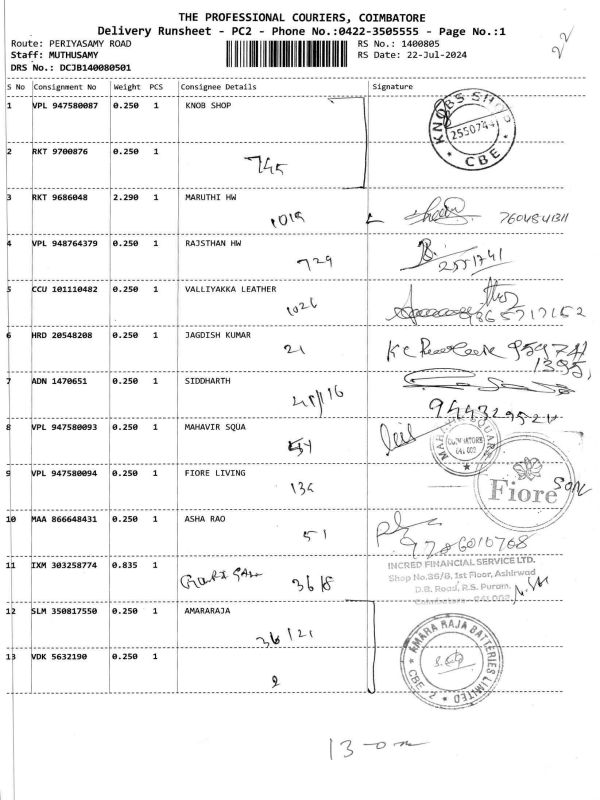 THE PROFESSIONAL COURIERS, COIMBATORE
Delivery Runsheet - PC2 - Phone No.:0422-3505555 - Page No.:1
Route: PERIYASAMY ROAD
RS No.: 1400805
Staff: MUTHUSAMY
RS Date: 22-Jul-2024
DRS No.: DCJB140080501
S No Consignment No Weight PCS Consignee Details Signature
1 VPL 947580087 0.250 1 KNOB SHOP
KNOBS SHOP
2550744
CBE
2 RKT 9700876 0.250 1
745
3 RKT 9686048 2.290 1 MARUTHI HW
1019
4 VPL 948764379 0.250 1 RAJSTHAN HW
729
2551741
5 CCU 101110482 0.250 1 VALLIYAKKA LEATHER
1026
6 HRD 20548208 0.250 1 JAGDISH KUMAR
21
7 ADN 1470651 0.250 1 SIDDHARTH
8 VPL 947580093 0.250 1 MAHAVIR SQUA
COIMBATORE
641 002
9 VPL 947580094 0.250 1 FIORE LIVING
Fiore
10 MAA 866648431 0.250 1 ASHA RAO
51
11 IXM 303258774 0.835 1
3618
INCRED FINANCIAL SERVICE LTD.
Shop No.86/8, 1st Floor, Ashirwad
D.B. Road, R.S. Puram,
12 SLM 350817550 0.250 1 AMARARAJA
36/21
AMARA RAJA BATTERIES LIMITED
CBE-2
13 VDK 5632190 0.250 1
2